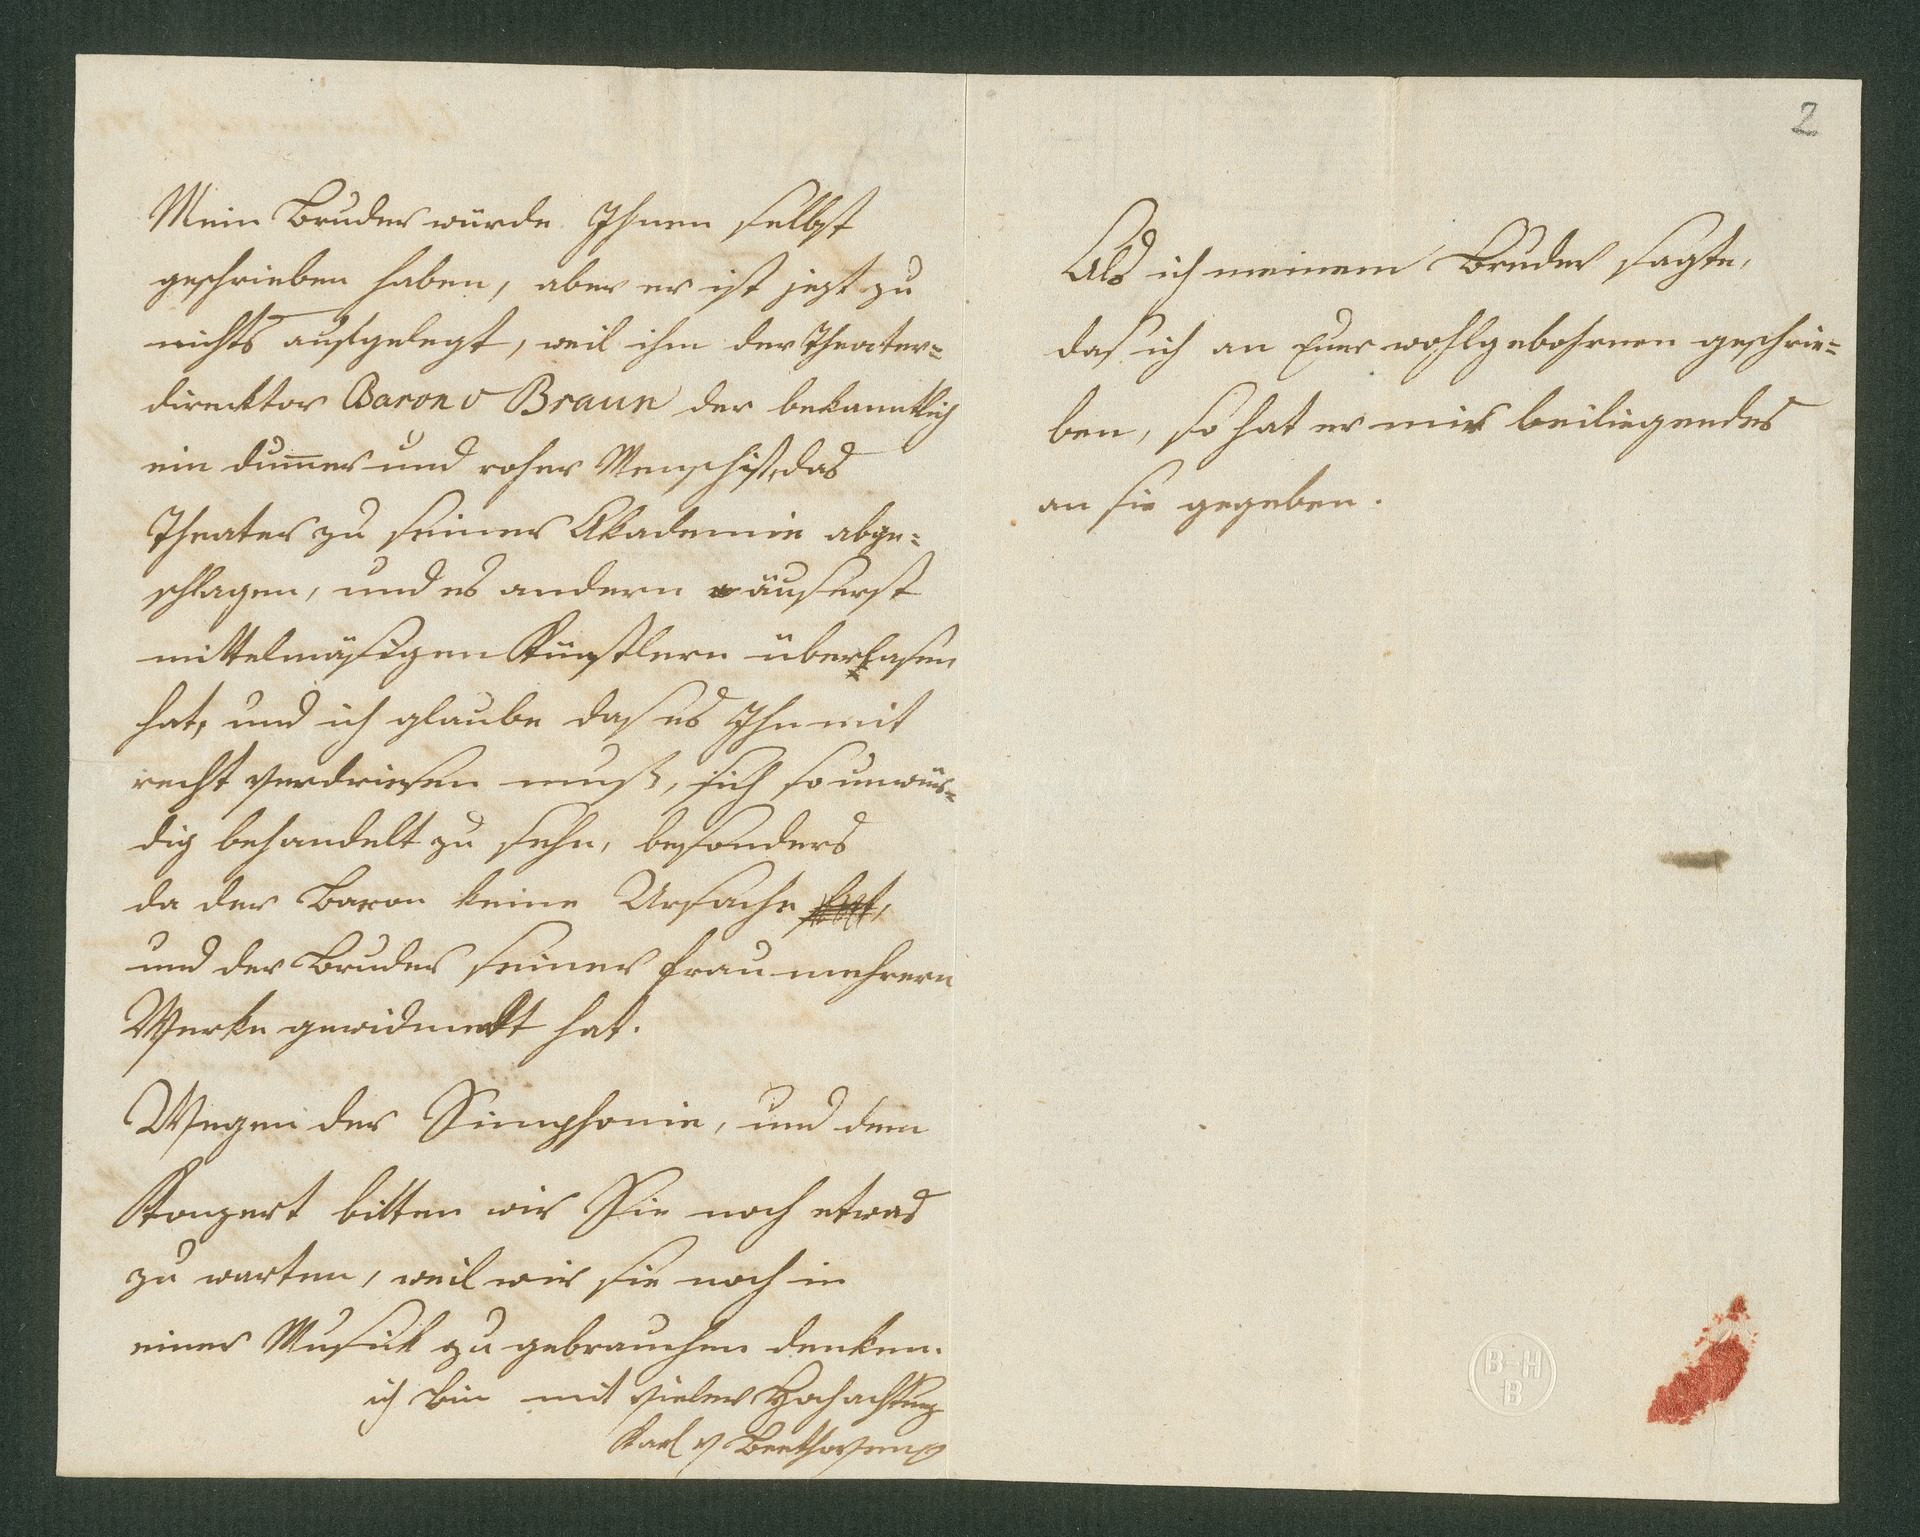 Mein Bruder würde Ihnen selbst
geschrieben haben, aber er ist jezt zu
nichts aufgelegt, weil ihm der Theater=
direcktor Baron v Braun der bekanntlich
ein dum̅er und roher Mensch ist, das
Theater zu seiner Akademie abge=
schlagen, und es andern äuserst
mittelmäsigen Künstlern überlasen
hat, und ich glaube das es Ihn mit
recht verdriesen muß, sich so unwür=
dig behandelt zu sehn, besonders
da der Baron keine Ursache hat,
und der Bruder seiner Frau mehrern
Werke gewidmett hat.
Wegen der Simphonie, und dem
Konzert bitten wir Sie noch etwas
zu warten, weil wir sie noch in
einer Musick zu gebrauchen denken.
ich bin mit vieler Hochachtung
Karl v Beethoven
2
Als ich meinem Bruder sagte,
das ich an Euer wohlgebohrnen geschrie=
ben, so hat er mir beiliegendes
an sie gegeben.
B H
B